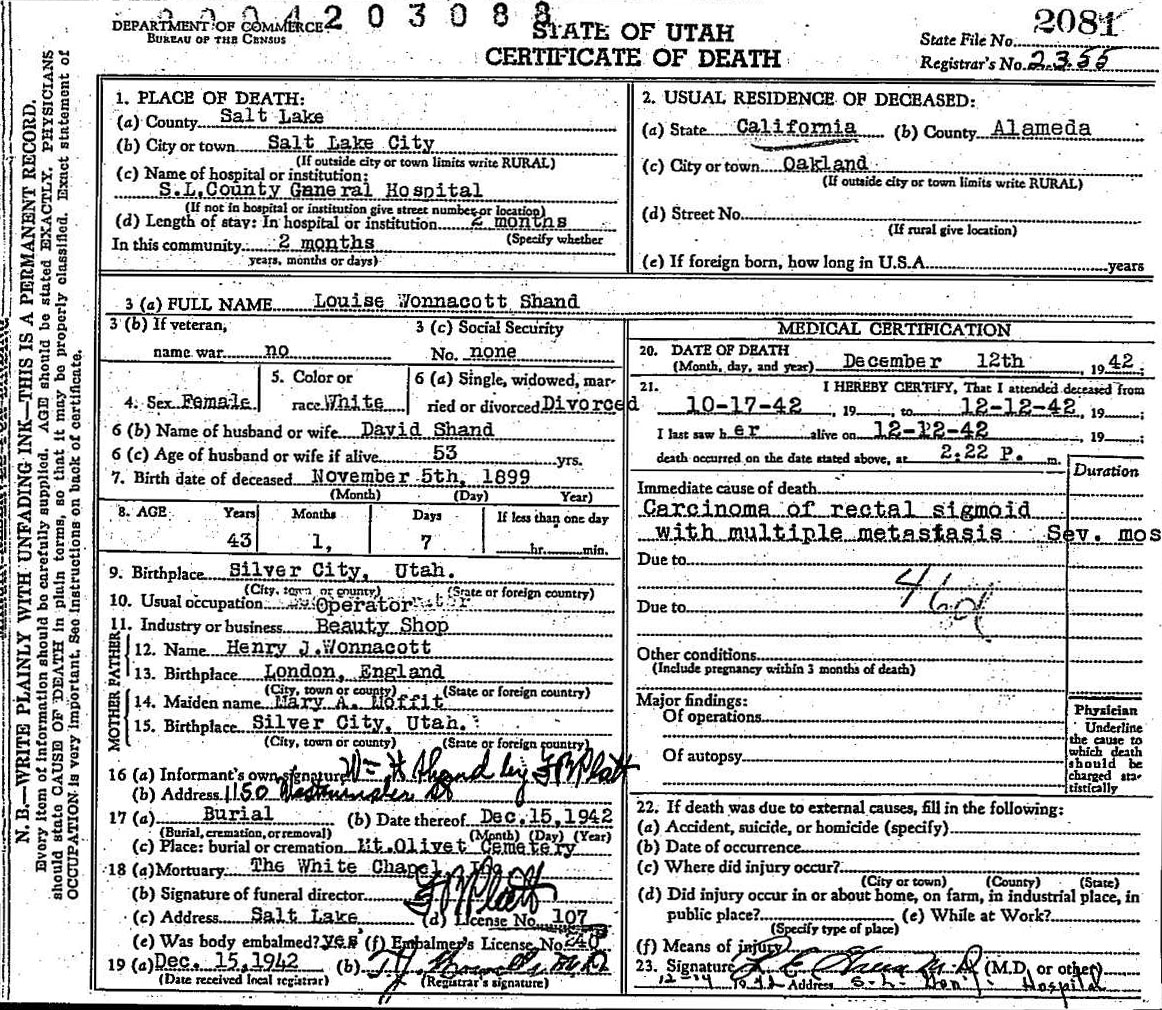 0004203088
DEPARTMENT OF COMMERCE
BUREAU OF THE CENSUS
STATE OF UTAH
CERTIFICATE OF DEATH
2081
State File No.
Registrar's No. 2355
N. B.—WRITE PLAINLY WITH UNFADING INK—THIS IS A PERMANENT RECORD.
Every item of information should be carefully supplied. AGE should be stated EXACTLY. PHYSICIANS
should state CAUSE OF DEATH in plain terms, so that it may be properly classified. Exact statement of
OCCUPATION is very important. See instructions on back of certificate.
1. PLACE OF DEATH:
(a) County Salt Lake
(b) City or town Salt Lake City
(If outside city or town limits write RURAL)
(c) Name of hospital or institution:
S.L.County Gneral Hospital
(If not in hospital or institution give street number or location)
(d) Length of stay: In hospital or institution 2 months
(Specify whether
In this community 2 months
years, months or days)
2. USUAL RESIDENCE OF DECEASED:
(a) State California (b) County Alameda
(c) City or town Oakland
(If outside city or town limits write RURAL)
(d) Street No.
(If rural give location)
(e) If foreign born, how long in U.S.A. years
3 (a) FULL NAME Louise Wonnacott Shand
3 (b) If veteran,
name war no
3 (c) Social Security
No. none
4. Sex Female
5. Color or
race White
6 (a) Single, widowed, mar-
ried or divorced Divorced
6 (b) Name of husband or wife David Shand
6 (c) Age of husband or wife if alive 53 yrs.
7. Birth date of deceased November 5th, 1899
(Month) (Day) Year)
8. AGE Years Months Days If less than one day
43 1, 7 hr. min.
9. Birthplace Silver City, Utah.
(City, town or county) (State or foreign country)
10. Usual occupation Operator
11. Industry or business Beauty Shop
FATHER
12. Name Henry J.Wonnacott
13. Birthplace London, England
(City, town or county) (State or foreign country)
MOTHER
14. Maiden name Mary A. Moffit
15. Birthplace Silver City, Utah.
(City, town or county) (State or foreign country)
16 (a) Informant's own signature Wm H Shand by F B Platt
(b) Address 1150 Westminster
17 (a) Burial (b) Date thereof Dec.15,1942
(Burial, cremation, or removal) (Month) (Day) (Year)
(c) Place: burial or cremation Mt.Olivet Cemetery
18 (a) Mortuary The White Chapel
(b) Signature of funeral director F B Platt
(c) Address Salt Lake (d) License No. 107
(e) Was body embalmed? yes (f) Embalmer's License, No. 240
19 (a) Dec. 15,1942 (b)
(Date received local registrar) (Registrar's signature)
MEDICAL CERTIFICATION
20. DATE OF DEATH
(Month, day, and year) December 12th 1942;
21. I HEREBY CERTIFY, That I attended deceased from
10-17-42, 19 , to 12-12-42, 19 ;
I last saw her alive on 12-12-42, 19 ;
death occurred on the date stated above, at 2:22 P. m.
Duration
Immediate cause of death
Carcinoma of rectal sigmoid
with multiple metastasis Sev. mos
Due to
Due to
Other conditions
(Include pregnancy within 3 months of death)
Major findings:
Of operations
Of autopsy
Physician
Underline
the cause to
which death
should be
charged sta-
tistically
22. If death was due to external causes, fill in the following:
(a) Accident, suicide, or homicide (specify)
(b) Date of occurrence
(c) Where did injury occur?
(City or town) (County) (State)
(d) Did injury occur in or about home, on farm, in industrial place, in
public place? (e) While at Work?
(Specify type of place)
(f) Means of injury
23. Signature (M.D. or other)
12-14 1942 Address S.L. Gen. Hospital